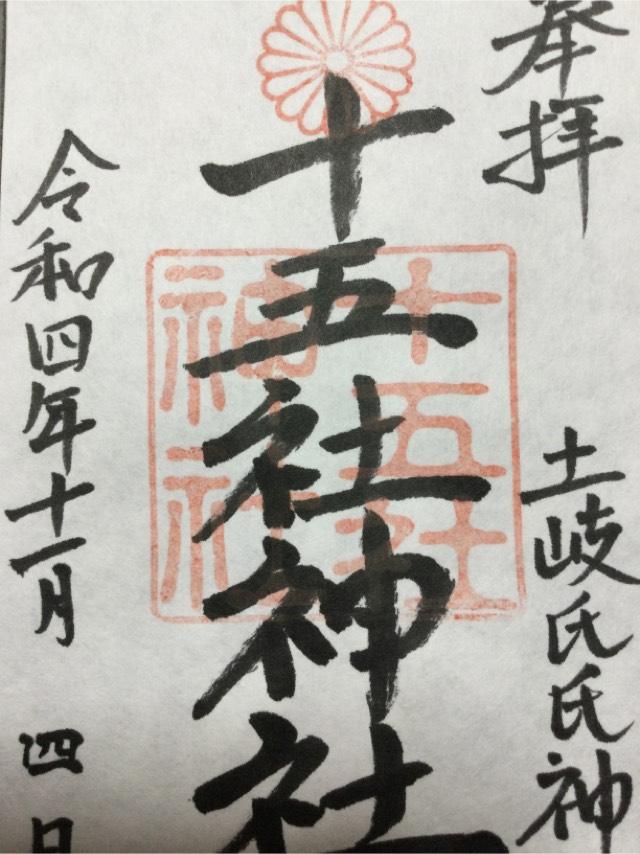 奉拝
土岐氏氏神
十五社神社
十五社
神社
令和四年十一月四日